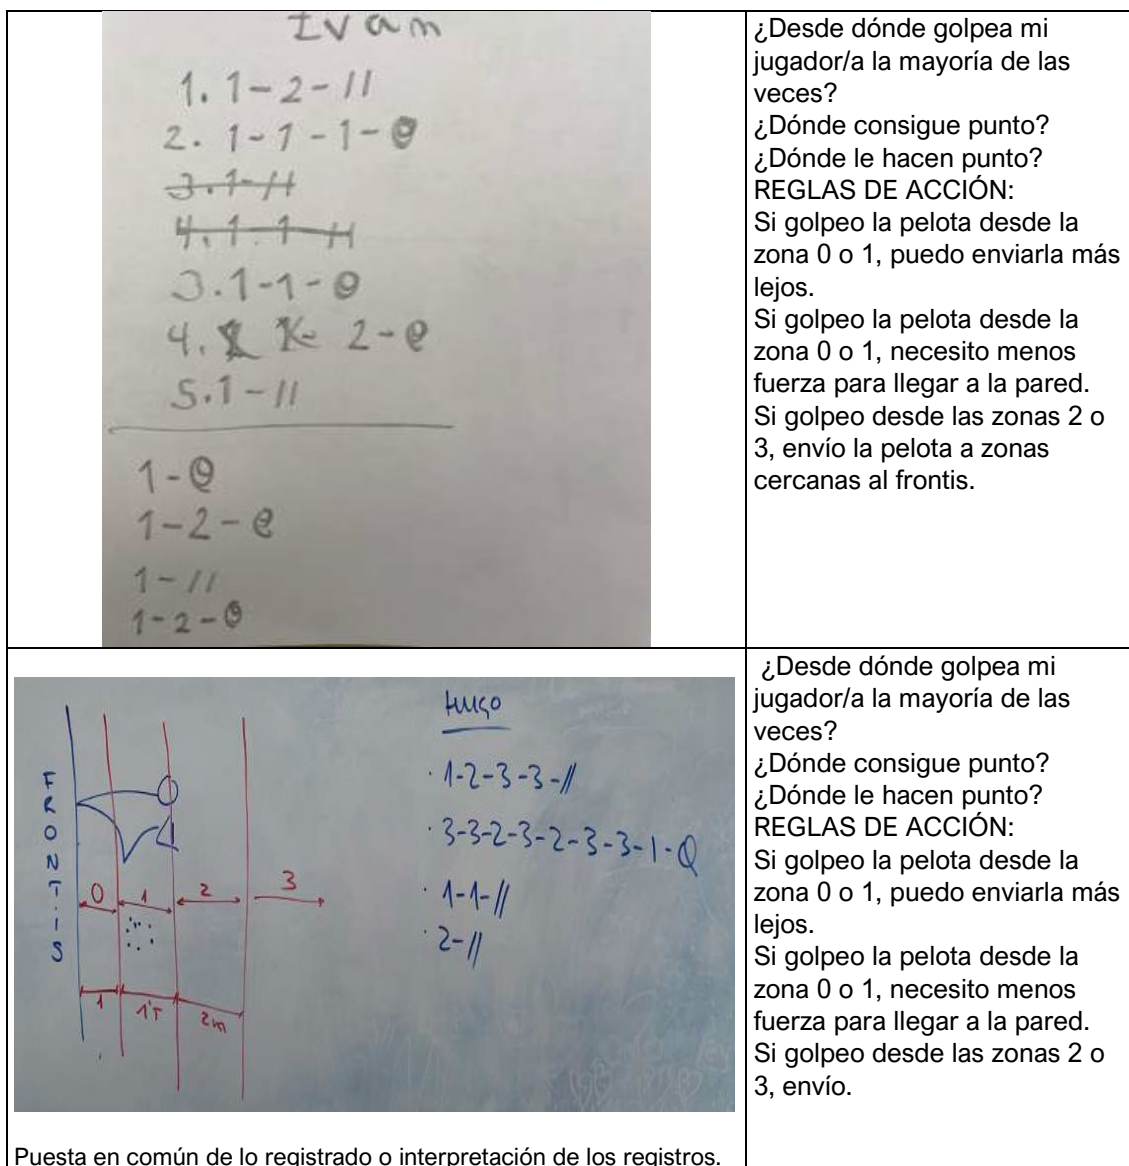 Ivan
1. 1-2-//
2. 1-1-1-O
3. 1-//
4. 1-1-//
3. 1-1-O
4. 2-O
5. 1-//
1-O
1-2-O
1-//
1-2-O
¿Desde dónde golpea mi
jugador/a la mayoría de las
veces?
¿Dónde consigue punto?
¿Dónde le hacen punto?
REGLAS DE ACCIÓN:
Si golpeo la pelota desde la
zona 0 o 1, puedo enviarla más
lejos.
Si golpeo la pelota desde la
zona 0 o 1, necesito menos
fuerza para llegar a la pared.
Si golpeo desde las zonas 2 o
3, envío la pelota a zonas
cercanas al frontis.
FRONTIS
0 1 2 3
1 2m
Hugo
· 1-2-3-3-//
· 3-3-2-3-2-3-3-1-O
· 1-1-//
· 2-//
¿Desde dónde golpea mi
jugador/a la mayoría de las
veces?
¿Dónde consigue punto?
¿Dónde le hacen punto?
REGLAS DE ACCIÓN:
Si golpeo la pelota desde la
zona 0 o 1, puedo enviarla más
lejos.
Si golpeo la pelota desde la
zona 0 o 1, necesito menos
fuerza para llegar a la pared.
Si golpeo desde las zonas 2 o
3, envío.
Puesta en común de lo registrado o interpretación de los registros.